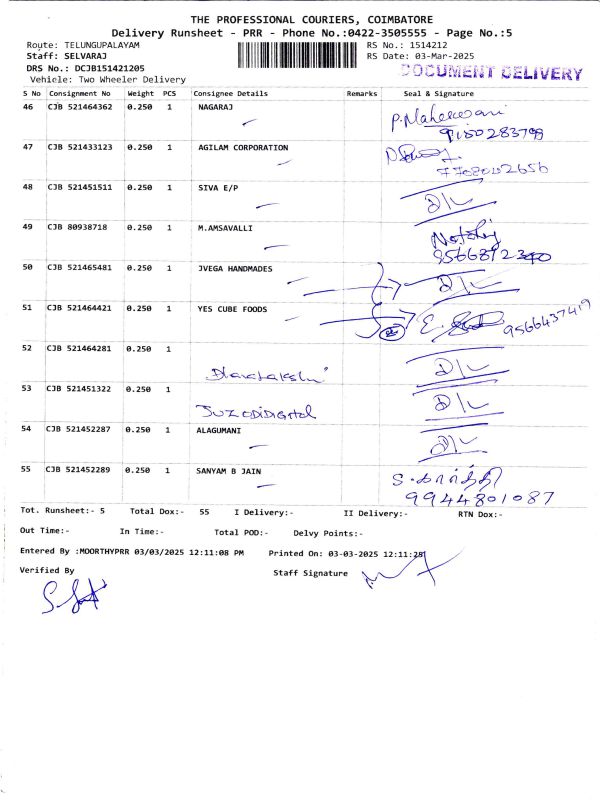 THE PROFESSIONAL COURIERS, COIMBATORE
Delivery Runsheet - PRR - Phone No.:0422-3505555 - Page No.:5
Route: TELUNGUPALAYAM RS No.: 1514212
Staff: SELVARAJ RS Date: 03-Mar-2025
DRS No.: DCJB151421205 DOCUMENT DELIVERY
Vehicle: Two Wheeler Delivery
S No Consignment No Weight PCS Consignee Details Remarks Seal & Signature
46 CJB 521464362 0.250 1 NAGARAJ P.Maheswari
9150283798
47 CJB 521433123 0.250 1 AGILAM CORPORATION
48 CJB 521451511 0.250 1 SIVA E/P D/L
49 CJB 80938718 0.250 1 M.AMSAVALLI
50 CJB 521465481 0.250 1 JVEGA HANDMADES D/L
51 CJB 521464421 0.250 1 YES CUBE FOODS 9566437419
52 CJB 521464281 0.250 1 D/L
53 CJB 521451322 0.250 1 D/L
54 CJB 521452287 0.250 1 ALAGUMANI D/L
55 CJB 521452289 0.250 1 SANYAM B JAIN S. கார்த்தி
9944801087
Tot. Runsheet:- 5 Total Dox:- 55 I Delivery:- II Delivery:- RTN Dox:-
Out Time:- In Time:- Total POD:- Delvy Points:-
Entered By :MOORTHYPRR 03/03/2025 12:11:08 PM Printed On: 03-03-2025 12:11:25
Verified By Staff Signature